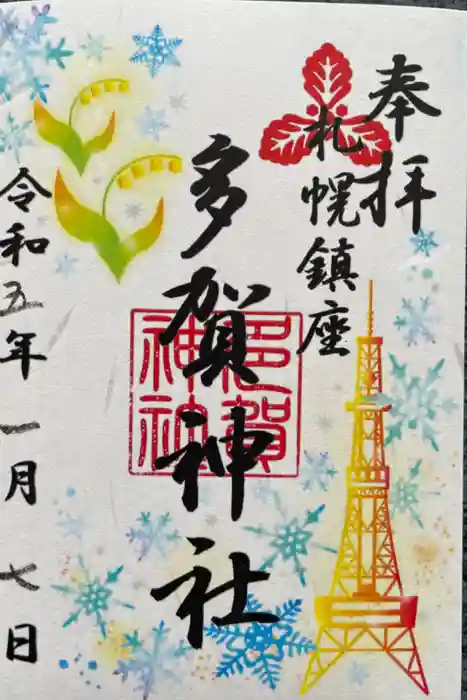 奉拝
札幌鎮座
多賀神社
多賀神社
令和五年一月七日